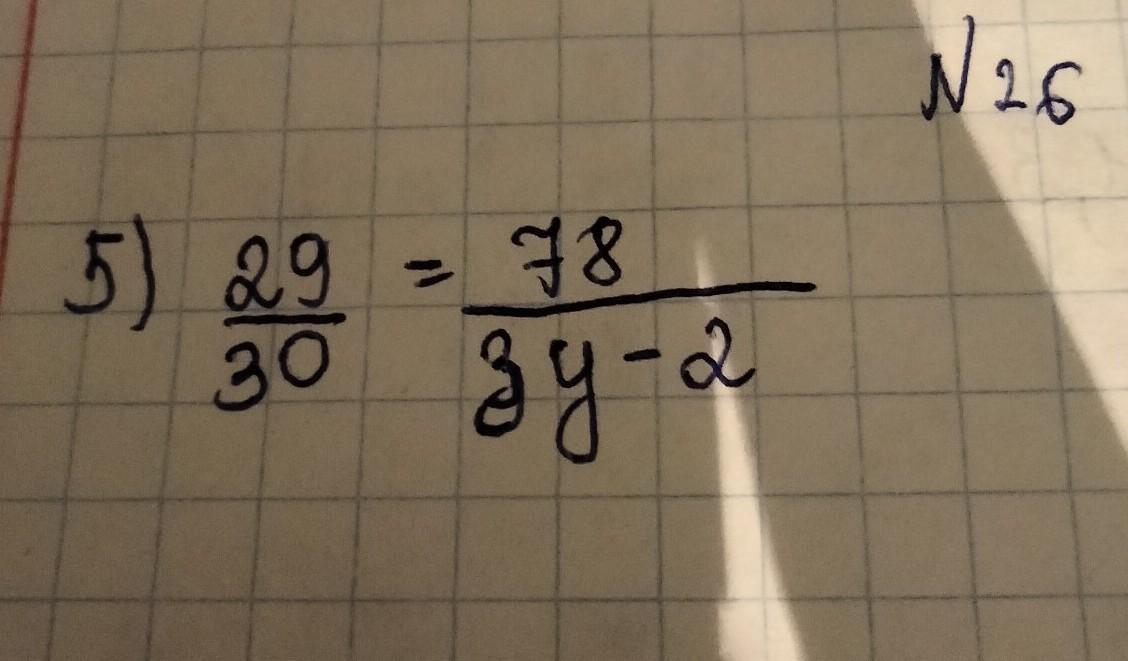 N 26
5) 29/30 = 78/(3y-2)